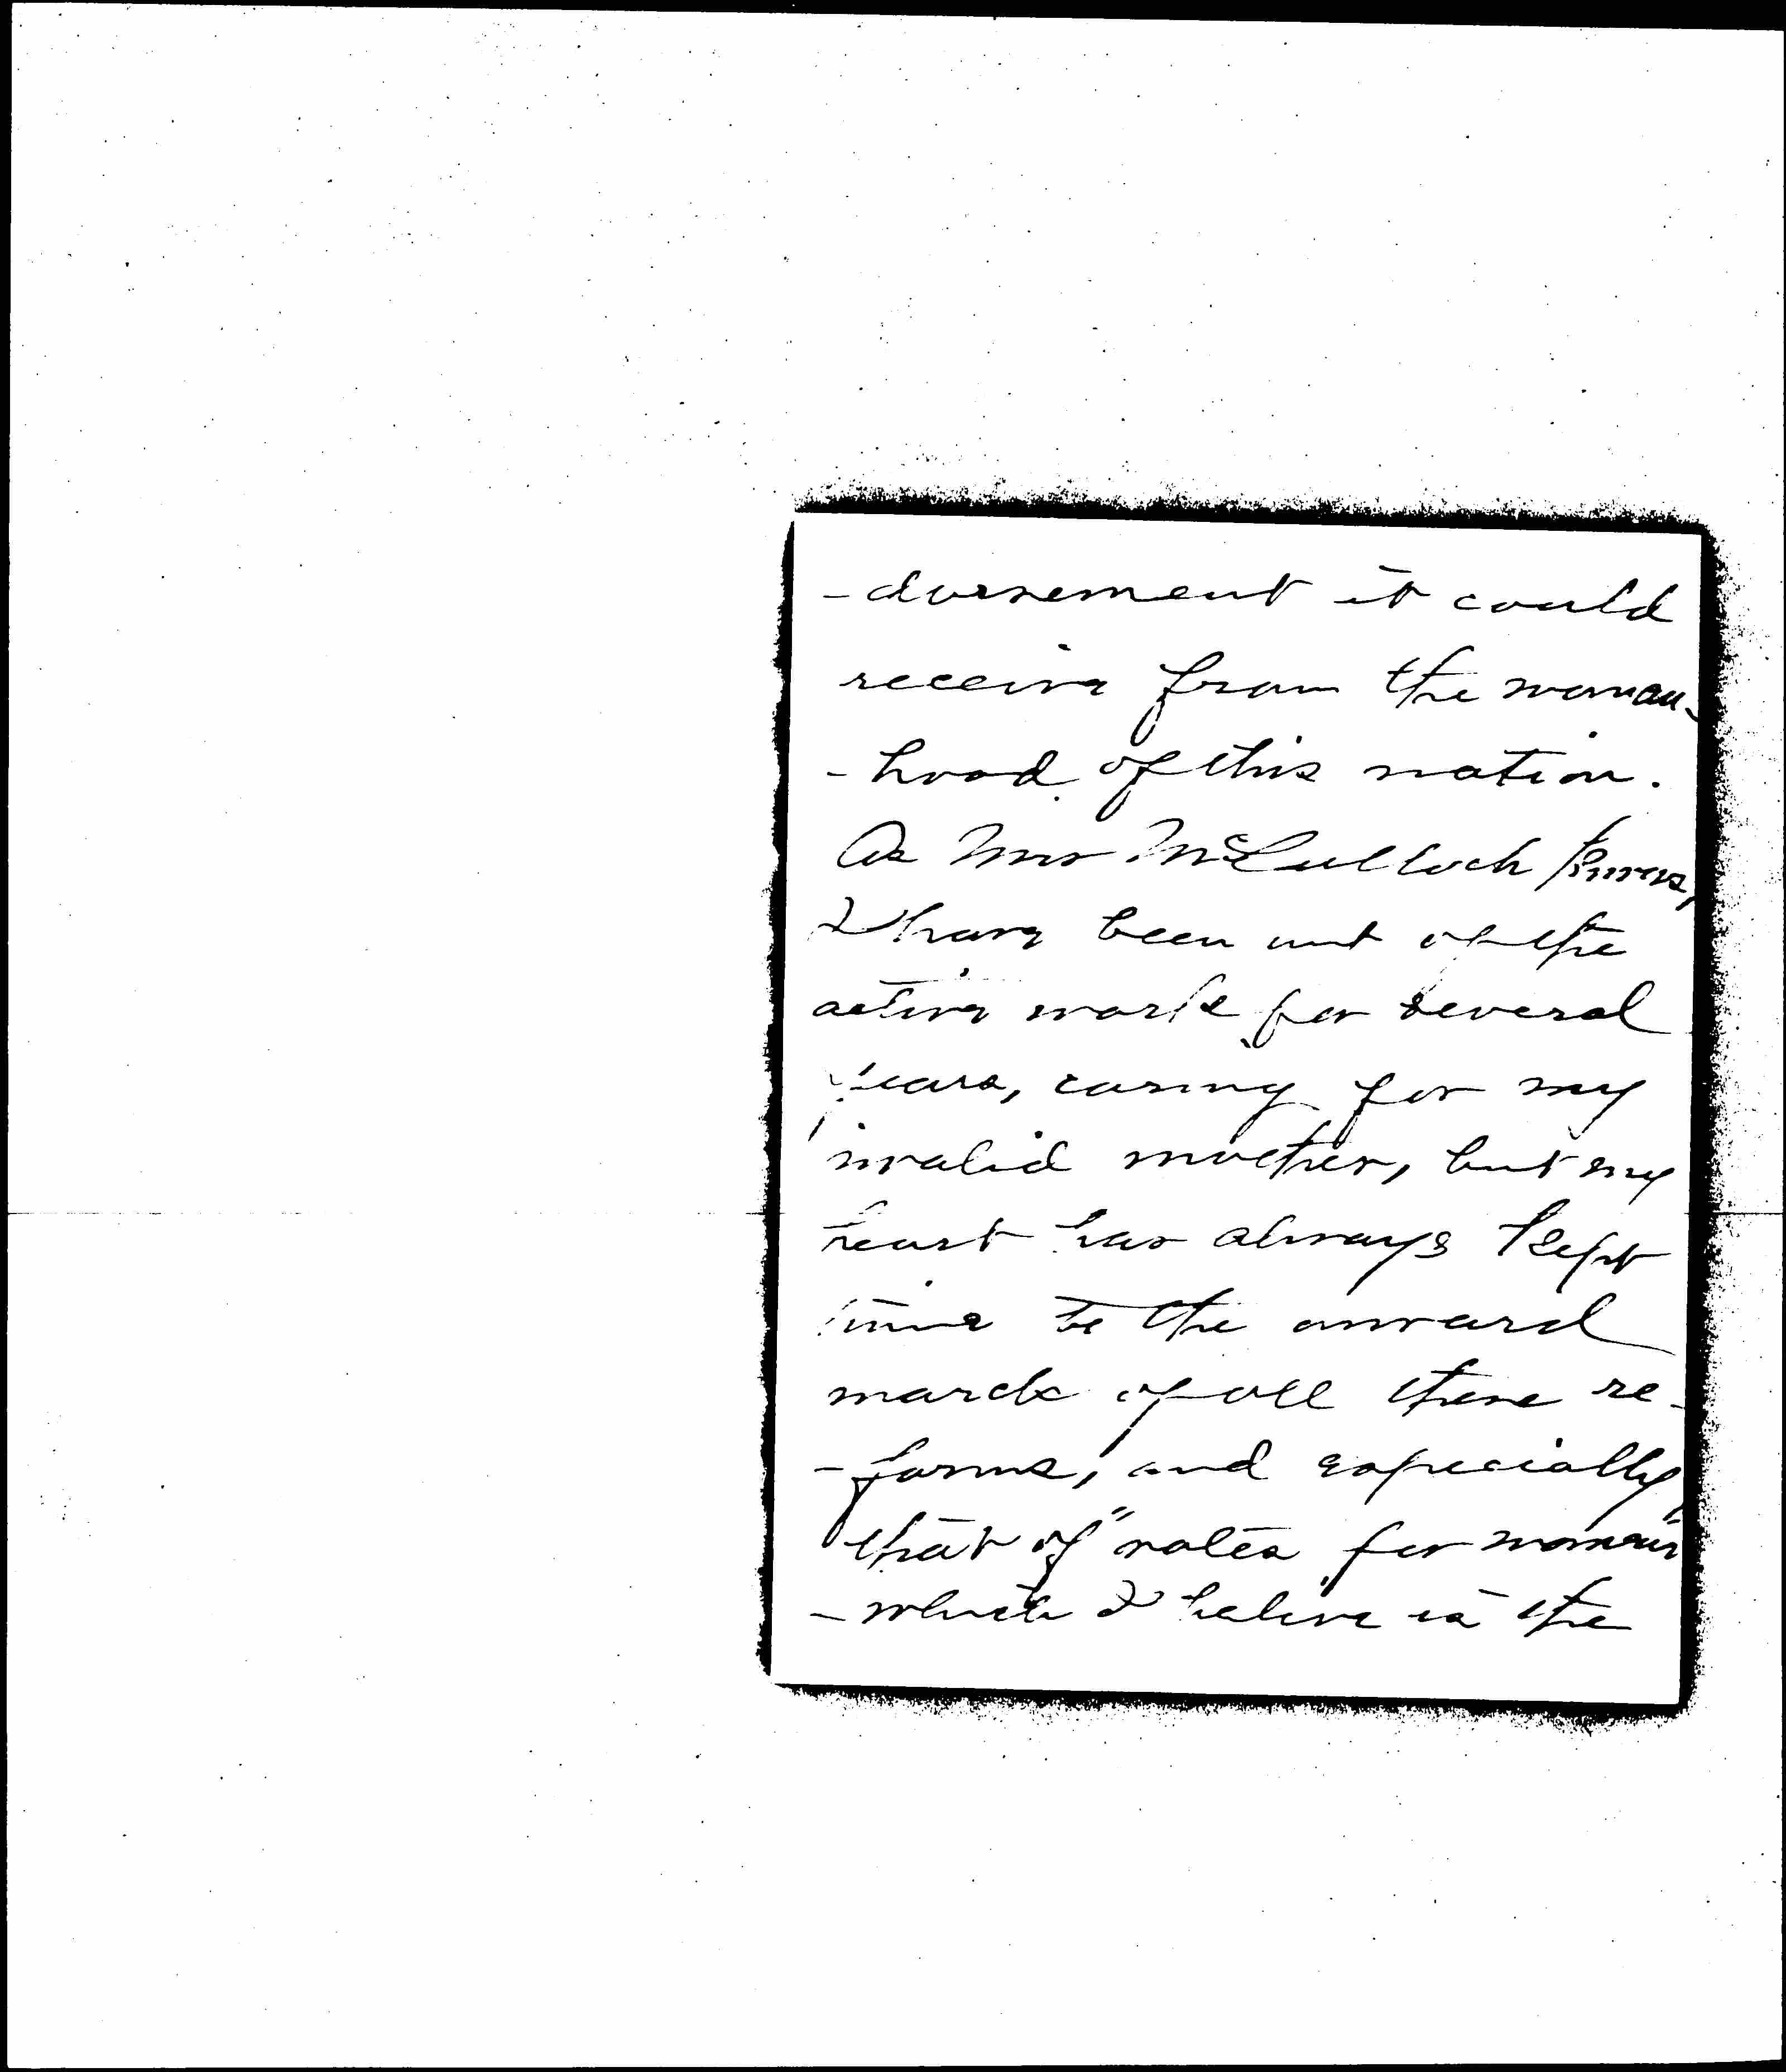 -dorsement it could
receive from the woman-
-hood of this nation.
As Mrs McCulloch knows,
I have been out of the
active work for several
years, caring for my
invalid mother, but my
heart has always kept
time to the onward
march of all these re-
-forms, and especially
that of "votes for women"
- which I believe is the